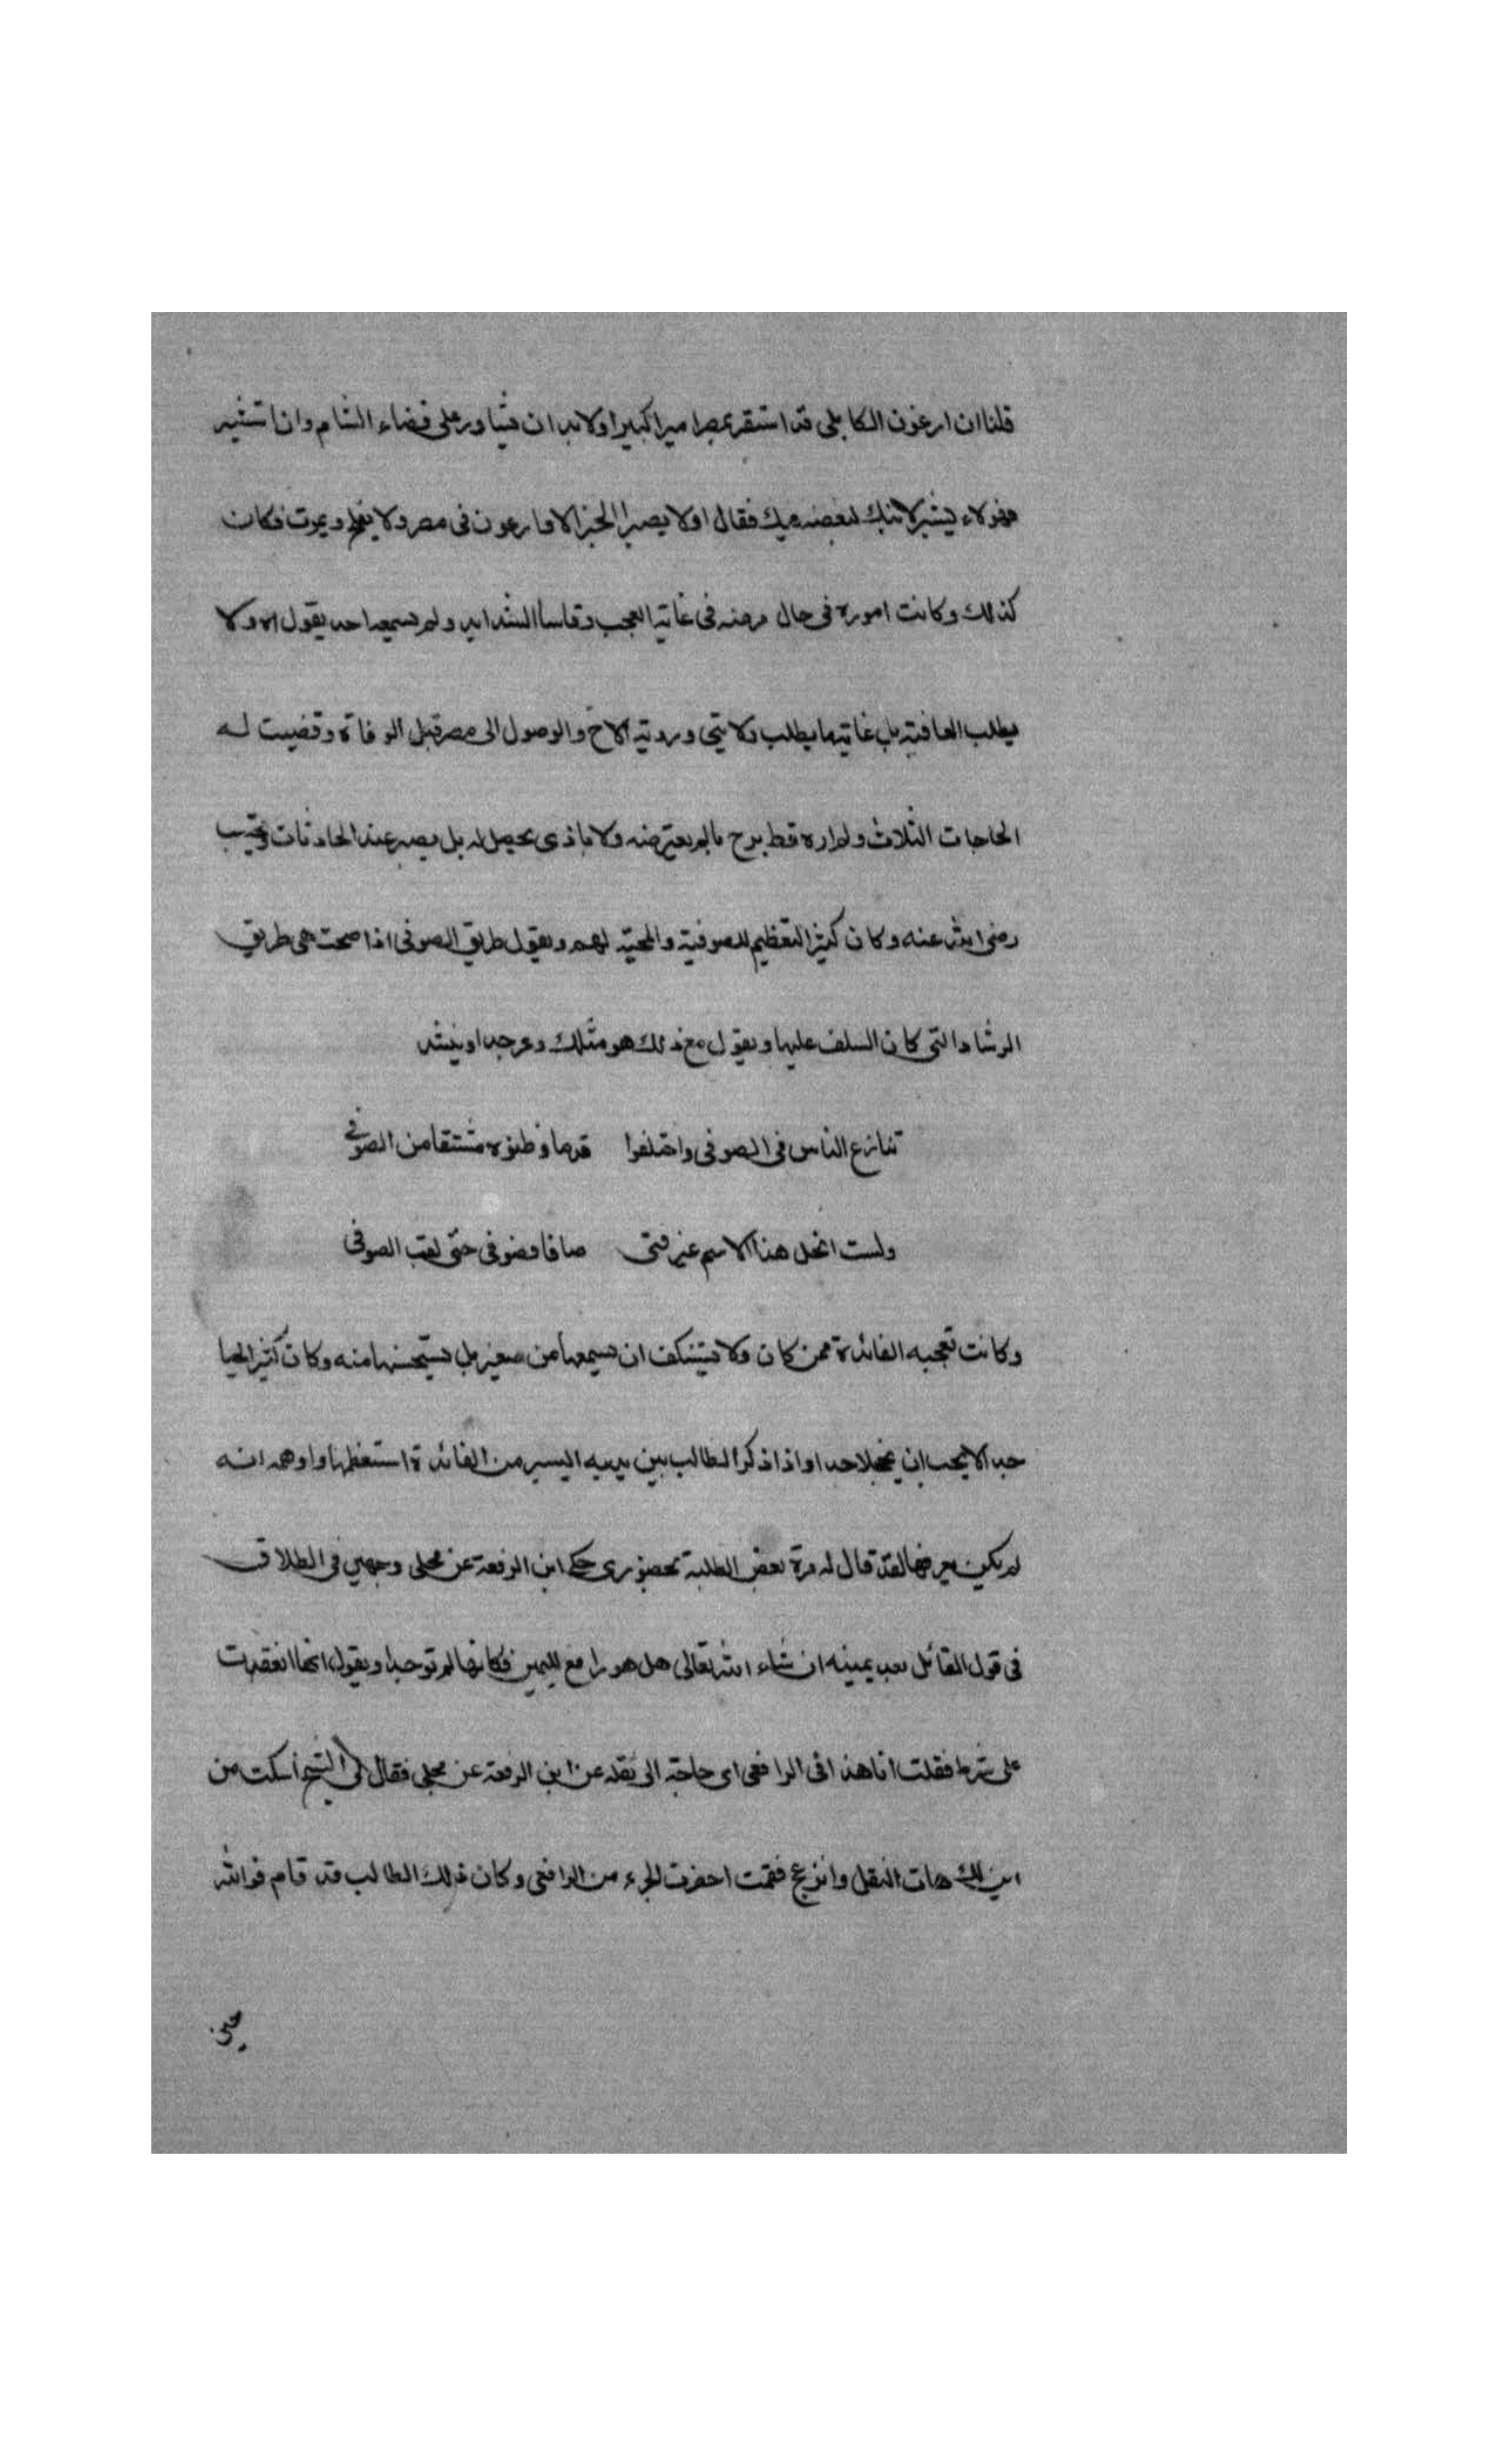 قلنا ان ارغون الكاملي قد استقر بمصر اميرا كبيرا ولابد ان يشاور على قضاء الشام وان استشير
فهولاء يشير لابنك لبغضه فيك فقال اولا يصير الخبز الا وارغون في مصر ولا يفلح ويموت فكان
كذلك وكانت اموره في حال مرضه في غاية العجب وقاسا الشدايد ولم يسمعه احد يقول اه ولا
يطلب العافية بل غاية ما يطلب ولايتي وروية الاخ والوصول الى مصر قبل الوفاة وقضيت له
الحاجات الثلاث ولم اره قط برح بالم يعترضه ولا باذى يحصل له بل يصبر عند الحادثات ويحتسب
رضي الله عنه وكان كثير التعظيم للصوفية والمحبة لهم ويقول طريق الصوفي اذا صحت هي طريق
الرشاد التي كان السلف عليها ويقول مع ذلك هو مثلك وينشد
تنازع الناس في الصوفي واختلفوا قدما وظنوه مشتقا من الصوفي
ولست انحل هذا الاسم غير فتى صافا فصوفي حتى لقب الصوفي
وكانت تعجبه الفائدة ممن كان ولا يستنكف ان يسمعها من صغير بل يستحسنها منه وكان كثير الحيا
جدا لا يحب ان يخجل احدا واذا ذكر الطالب بين يديه اليسير من الفائدة استعظمها واوهمه انه
لم يكن يعرفها لقد قال له مرة بعض الطلبة بحضوري حكى ابن الرفعة عن مجلي وجهين في الطلاق
في قول القائل بعد يمينه ان شاء الله تعالى هل هو رافع لليمين فكانها لم توجد او يقول انها انعقدت
على شرط فقلت انا هذا في الرافعي اى حاجة الى نقله عن ابن الرفعة عن مجلي فقال لي الشيخ اسكت من
اين لك هات النقل وانزعج فقمت احضرت الجزء من الرافعي وكان ذلك الطالب قد قام فوالله